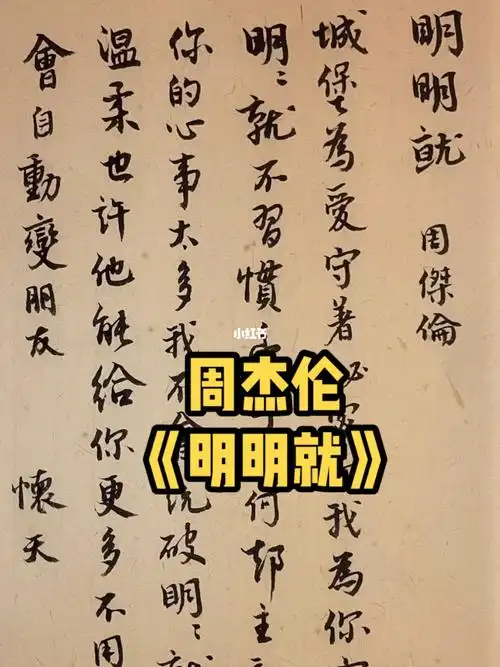 明明就 周傑倫
城堡為愛守著 我為你
明〻就不習慣 何却主
你的心事太多我不 破明〻就
溫柔也許他能給你更多不用
會自動變朋友 懷天
小红书
周杰伦
《明明就》